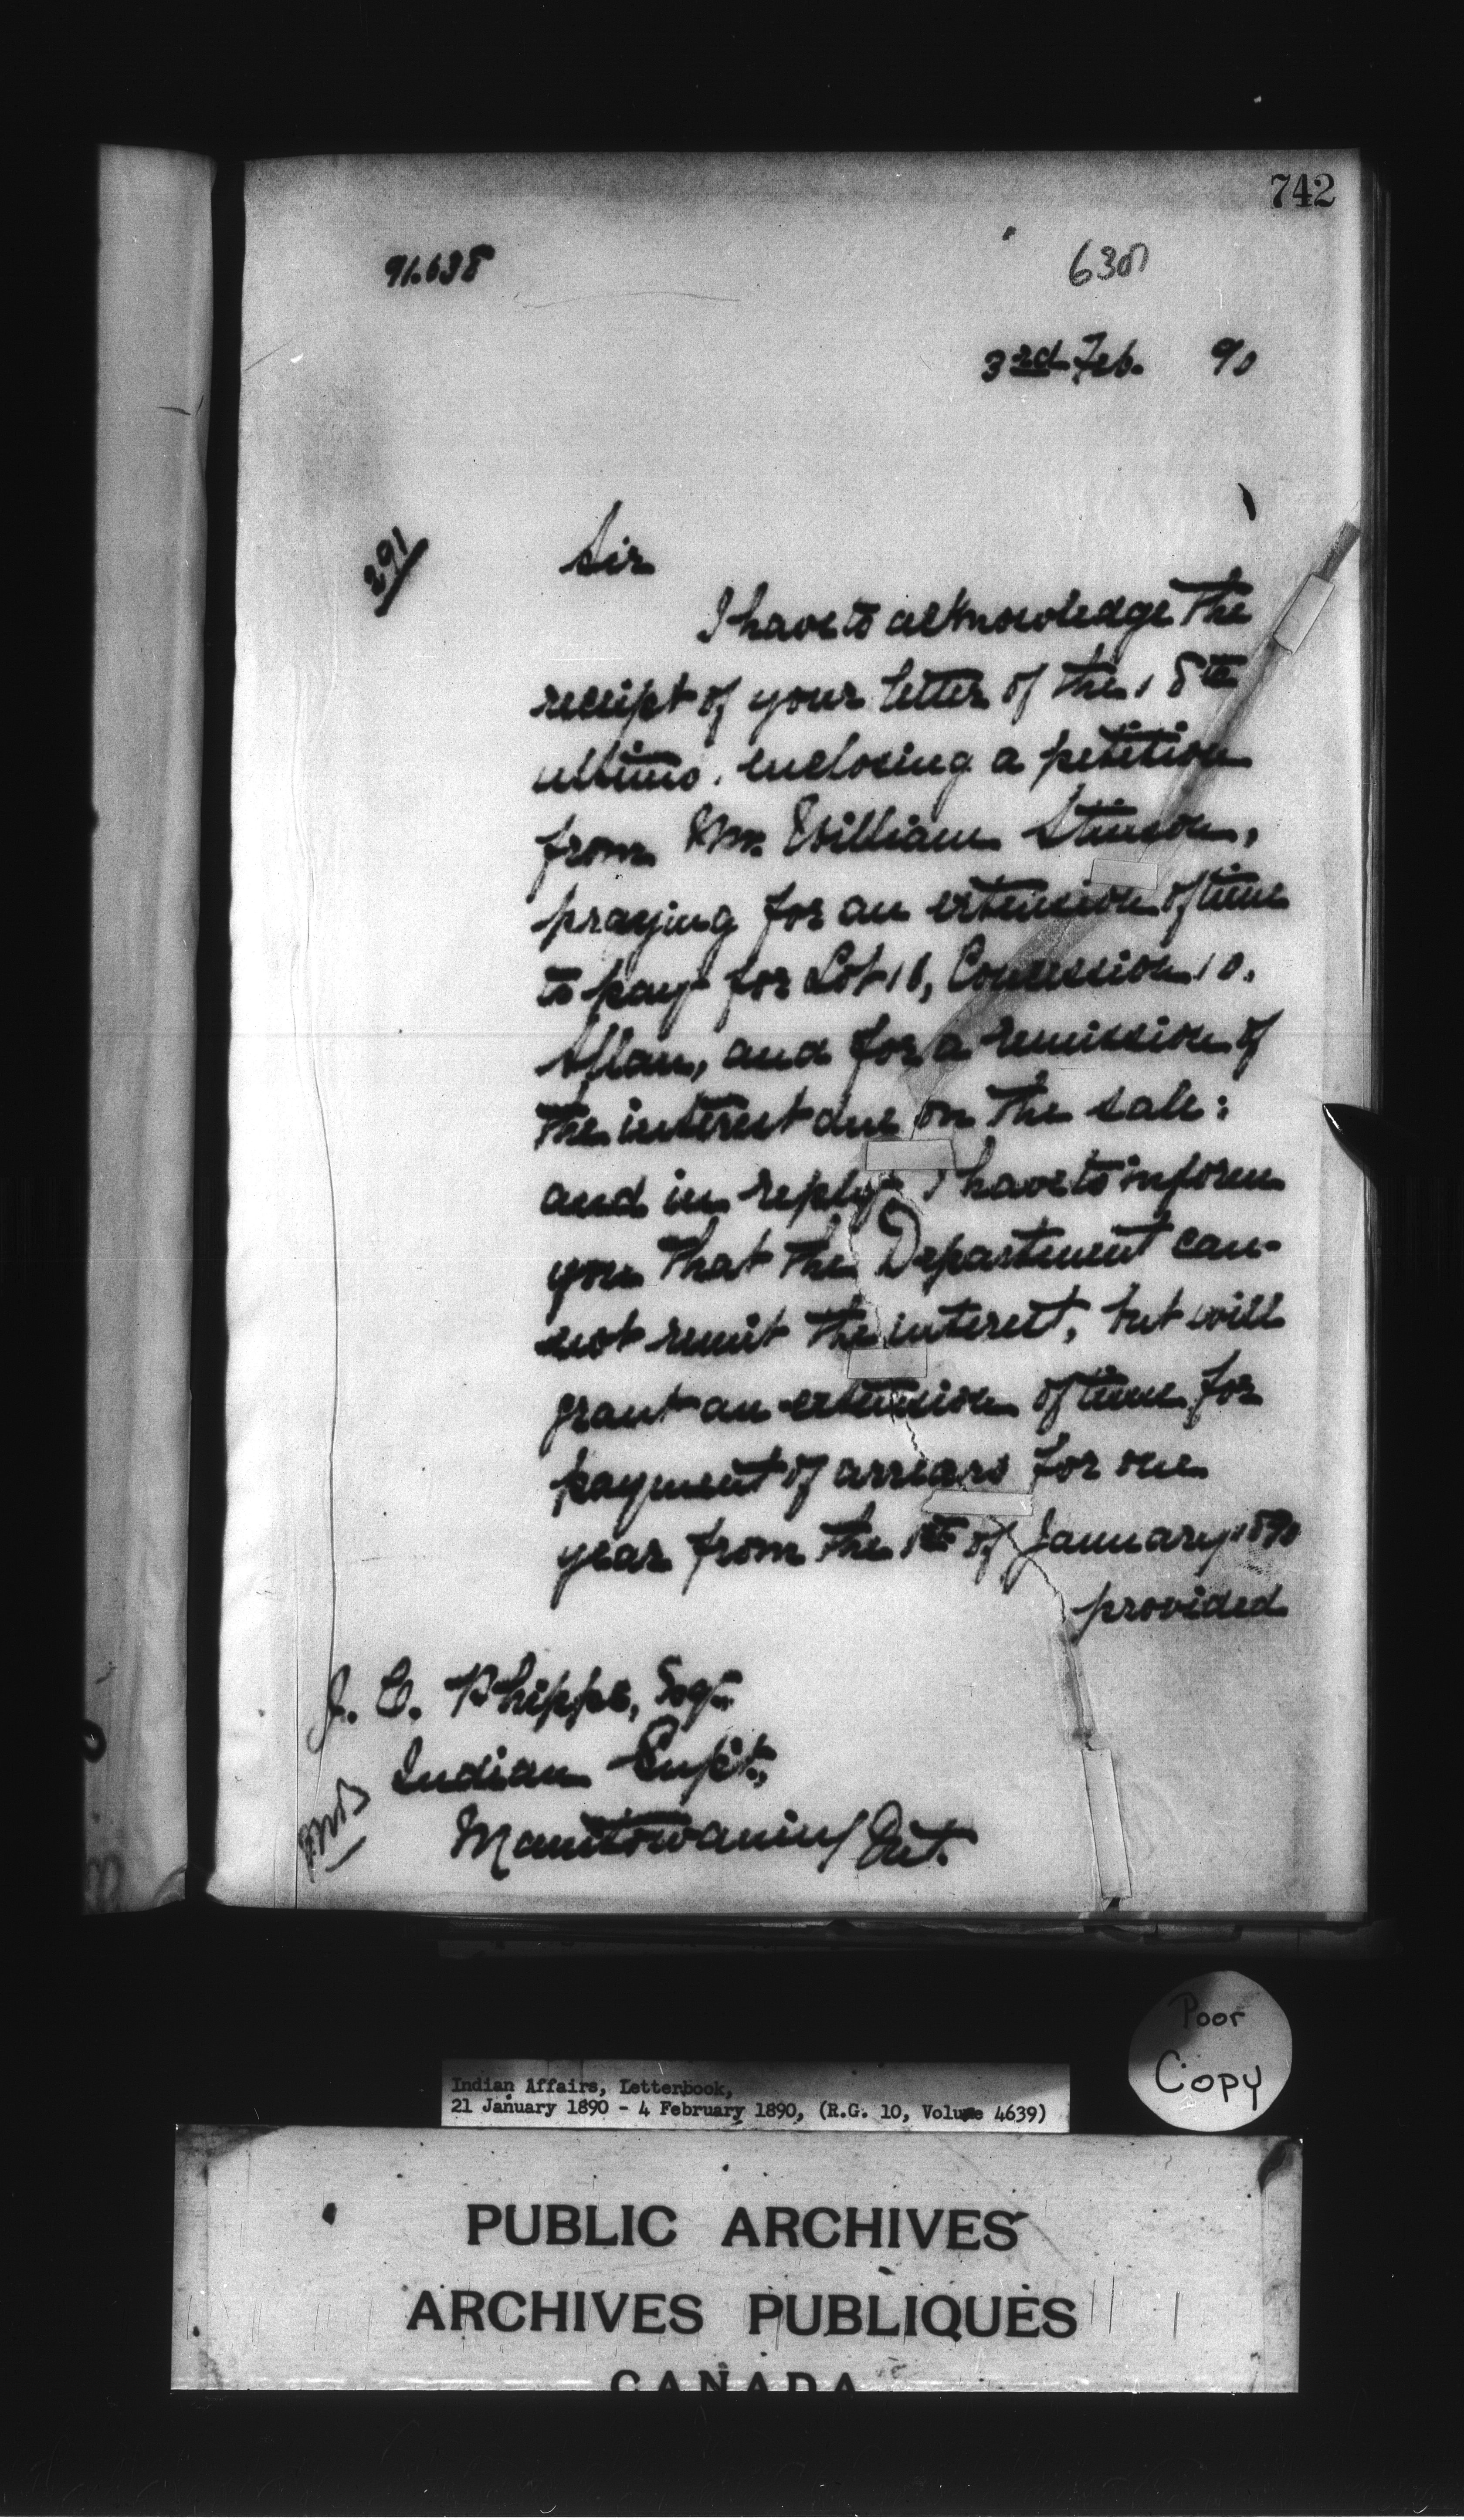 742
91.638
630
3rd Feb. 90
291
Sir
I have to acknowledge the
receipt of your letter of the 18th
ultimo, enclosing a petition
from Mr. William Stinson,
praying for an extension of time
to pay for Lot 18, Concession 10,
Allan, and for a remission of
the interest due on the sale:
and in reply I have to inform
you that the Department can-
not remit the interest, but will
grant an extension of time for
payment of arrears for one
year from the 1st of January 1890
provided
J. C. Phipps, Esqr.
Indian Supt.,
Manitowaning Ont.
Poor
Copy
Indian Affairs, Letterbook,
21 January 1890 - 4 February 1890, (R.G. 10, Volume 4639)
PUBLIC ARCHIVES
ARCHIVES PUBLIQUES
CANADA